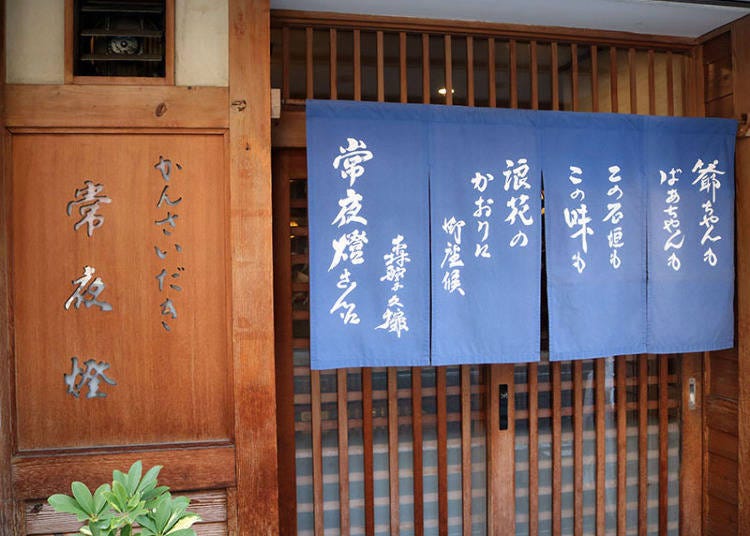 爺ちゃんも
ばあちゃんも
この石垣も
この味も
浪花の
かおりに
御座候
常夜燈さん江
かんさいだき
常夜燈